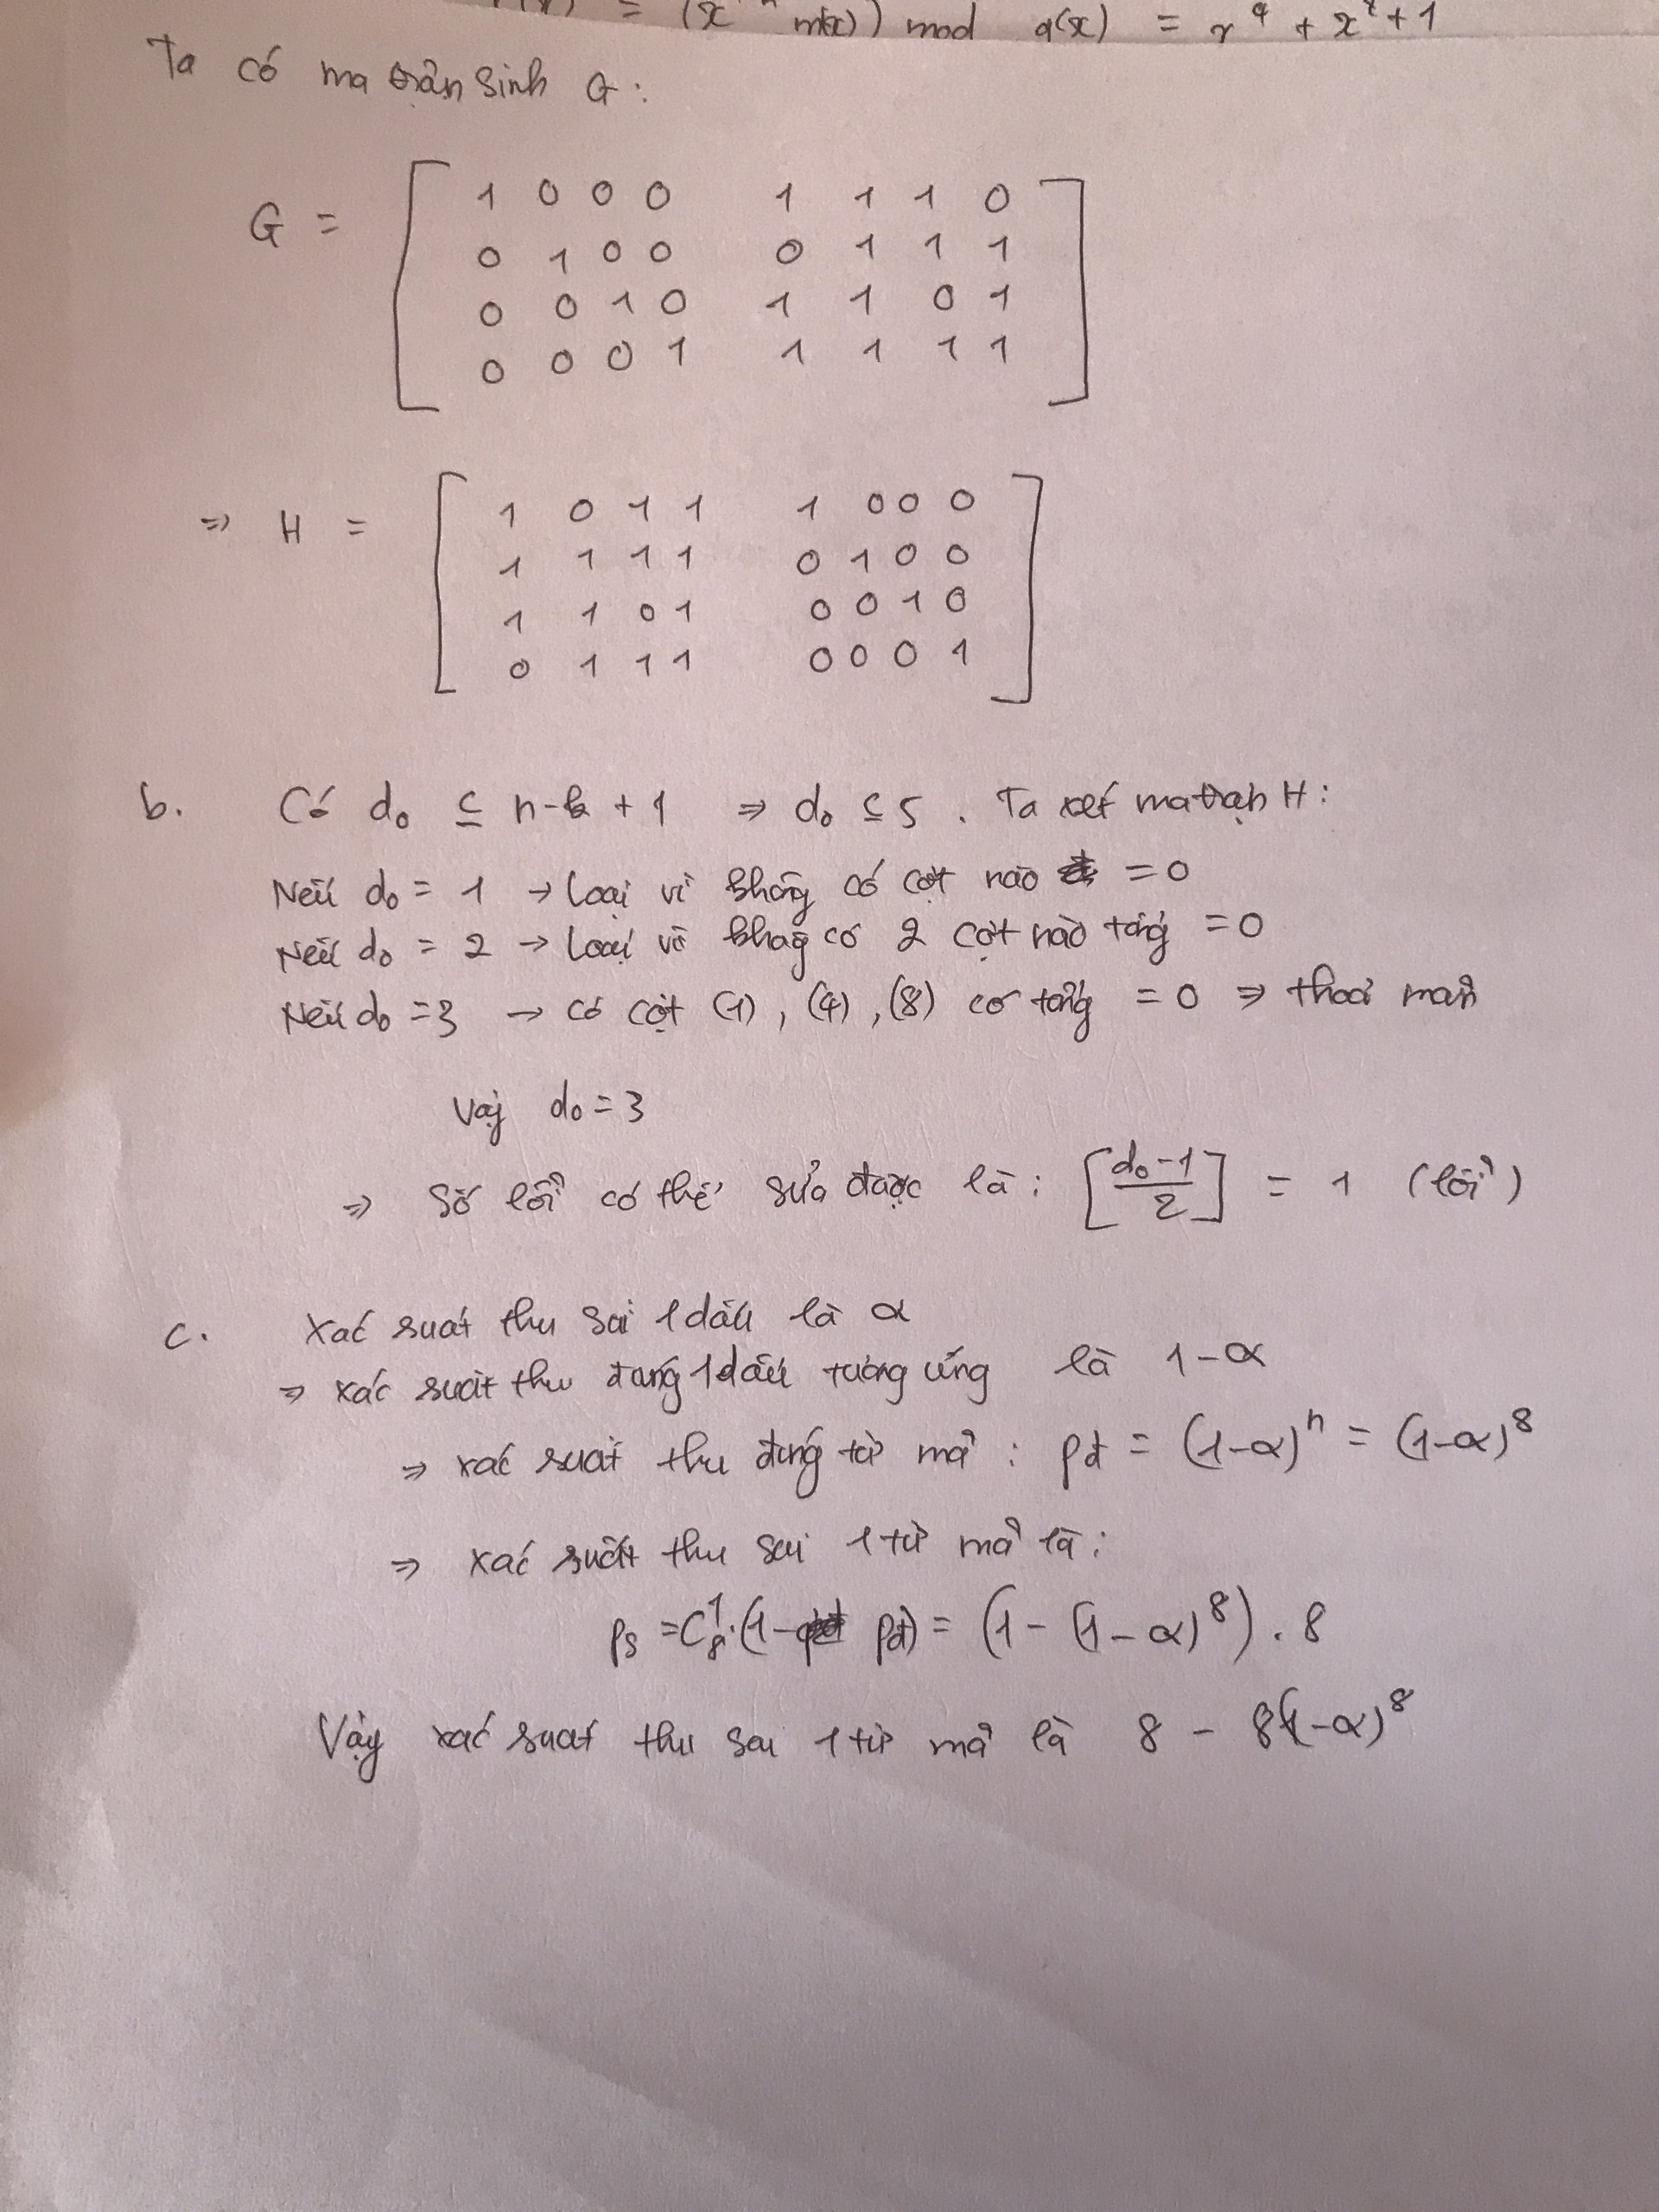 = (x m(x)) mod g(x) = x⁴ + x² + 1
Ta có ma trận sinh G:
G = [ 1 0 0 0 1 1 1 0
0 1 0 0 0 1 1 1
0 0 1 0 1 1 0 1
0 0 0 1 1 1 1 1 ]
⇒ H = [ 1 0 1 1 1 0 0 0
1 1 1 1 0 1 0 0
1 1 0 1 0 0 1 0
0 1 1 1 0 0 0 1 ]
b. Có d₀ ≤ n-k + 1 ⇒ d₀ ≤ 5. Ta xét ma trận H:
Nếu d₀ = 1 → Loại vì không có cột nào = 0
Nếu d₀ = 2 → Loại vì không có 2 cột nào tổng = 0
Nếu d₀ = 3 → có cột (1), (4), (8) có tổng = 0 ⇒ thoả mãn
Vậy d₀ = 3
⇒ Số lỗi có thể sửa được là: [(d₀-1)/2] = 1 (lỗi)
c. Xác suất thu sai 1 dấu là α
⇒ xác suất thu đúng 1 dấu tương ứng là 1-α
⇒ xác suất thu đúng từ mã: pđ = (1-α)ⁿ = (1-α)⁸
⇒ xác suất thu sai 1 từ mã là:
ps = C₈¹.(1- pđ) = (1 - (1-α)⁸) . 8
Vậy xác suất thu sai 1 từ mã là 8 - 8(1-α)⁸